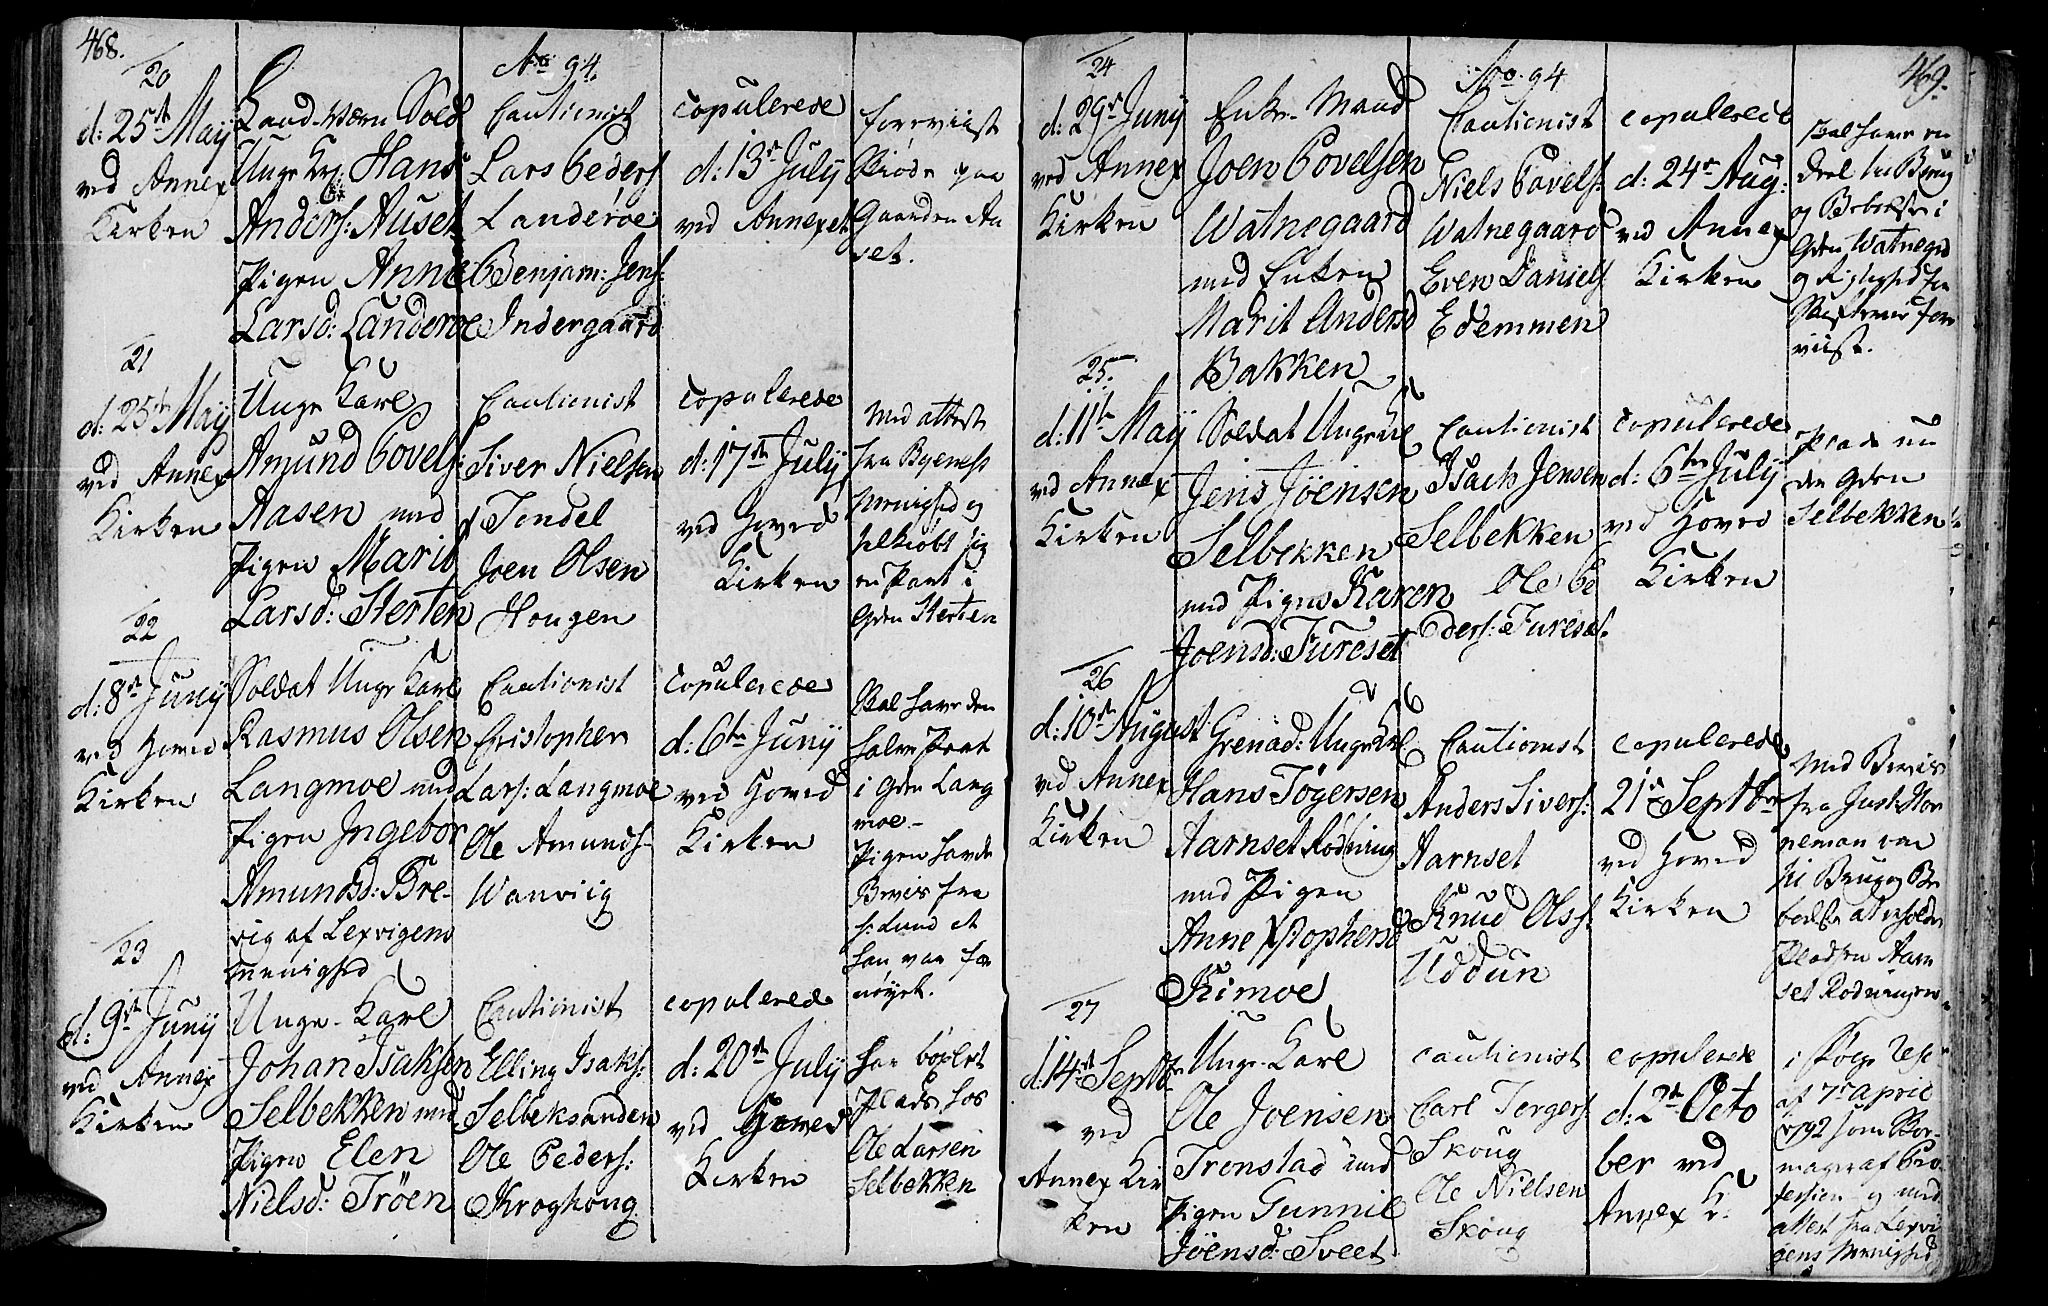 468.
Ao 94.
20
d: 25de Maij
ved Annex
Kirken
Land-Værn Sold
Unge Krl: Hans
Anders: Auset
Pigen Anne
Larsd: Landerøe
Cautionist
Lars Peders:
Landerøe
Benjam: Jens:
Indergaard
copulerede
d: 13de Julij
ved Annexet
foreviist
Skiøde paa
Gaarden Au
set.
21
d: 25de Maij
ved Annex
Kirken
Unge Karl
Amund Povels:
Aasen med
Pigen Marit
Larsd: Sterten
Cautionist
Siver Nielsen
Tendel
Joen Olsen
Hougen
copulerede
d: 17de Julij
ved Hoved
Kirken
Med attest
fra Byeness
Menighed og
hel kiøbt sig
en Part i
Gden Sterten
22
d: 8de Junij
ved Hoved
Kirken
Soldat Unge Karl
Rasmus Olsen
Langmoe med
Pigen Ingebor
Amundsd: Bre-
vig af Lexvigens
menighed
Cautionist
Christopher
Lars: Langmoe
Ole Amunds-
Wanviig
copulerede
d: 6te Junij
ved Hoved
Kirken
Skal have den
halve Part
i Gden Lang
moe-
Pigen havde
Bevis fra
h: Lund at
han var for
nøyet.
23
d: 9de Junij
ved Annex
Kirken
Unge-Karl
Johan Isaksen
Selbekken med
Pigen Elen
Nielsd: Trøen
Cautionist
Elling Isaks:
Selbeksanden
Ole Peders:
Kroghoug
copulerede
d: 20de Julij
ved Hoved
Kirken
har böxlet
Plads hos
Ole Larsen
Selbekken
469.
Ao. 94
24
d: 29de Junij
ved Annex
Kirken
Enke-Mand
Joen Povelsen
Watnegaard
med Enken
Marit Andersd
Bakken
Cautionist
Niels Povels:
Watnegaard
Even Daniels:
Edemmen
copuleret
d: 24de Aug:
ved Annex
Kirken
Skal have en
Deel til Brug
og Beboelse i
Gden Watnegrd
og Rigtighed for
Skifterne fore
viist.
25.
d: 11te Maij
ved Annex
Kirken
Soldat Unge Krl
Jens Jöensen
Selbekken
med Pigen Karen
Joensd: Fureset
Cautionist
Isach Jensen
Selbekken
Ole Pe
ders: Fureset.
copulerede
d: 6te Julij
ved Hoved
Kirken
Plads un
der Gden
Selbekken
26
d: 10de August
ved Annex
Kirken
Grenad: Unge Krl
Hans Tögersen
Aarnset Rödning
med Pigen
Anne Xstophersd
Kimoe
Cautionist
Anders Sivers:
Aarnset
Knud Ols:
Uddun
copulerede
21de Septbr
ved Hoved
Kirken
Med Bevis
fra Just: Hor
neman om
til Brug og Be
boelse at erholde
Pladsen Aarn
set Rodningen
27
d: 14de Septbr
ved
Annex Kir
ken
Unge-Karl
Ole Joensen
Tronstad med
Pigen Gunnil
Jöensd: Sveet
cautionist
Carl Torgers:
Skoug
Ole Nielsen
Skoug
copulerede
d: 2de Octo
ber ved
Annex K:
i Følge Res:
af 7de April
1792 som Bor-
mager af Pro
fession og med
attest fra Lexvi
gens Menighed